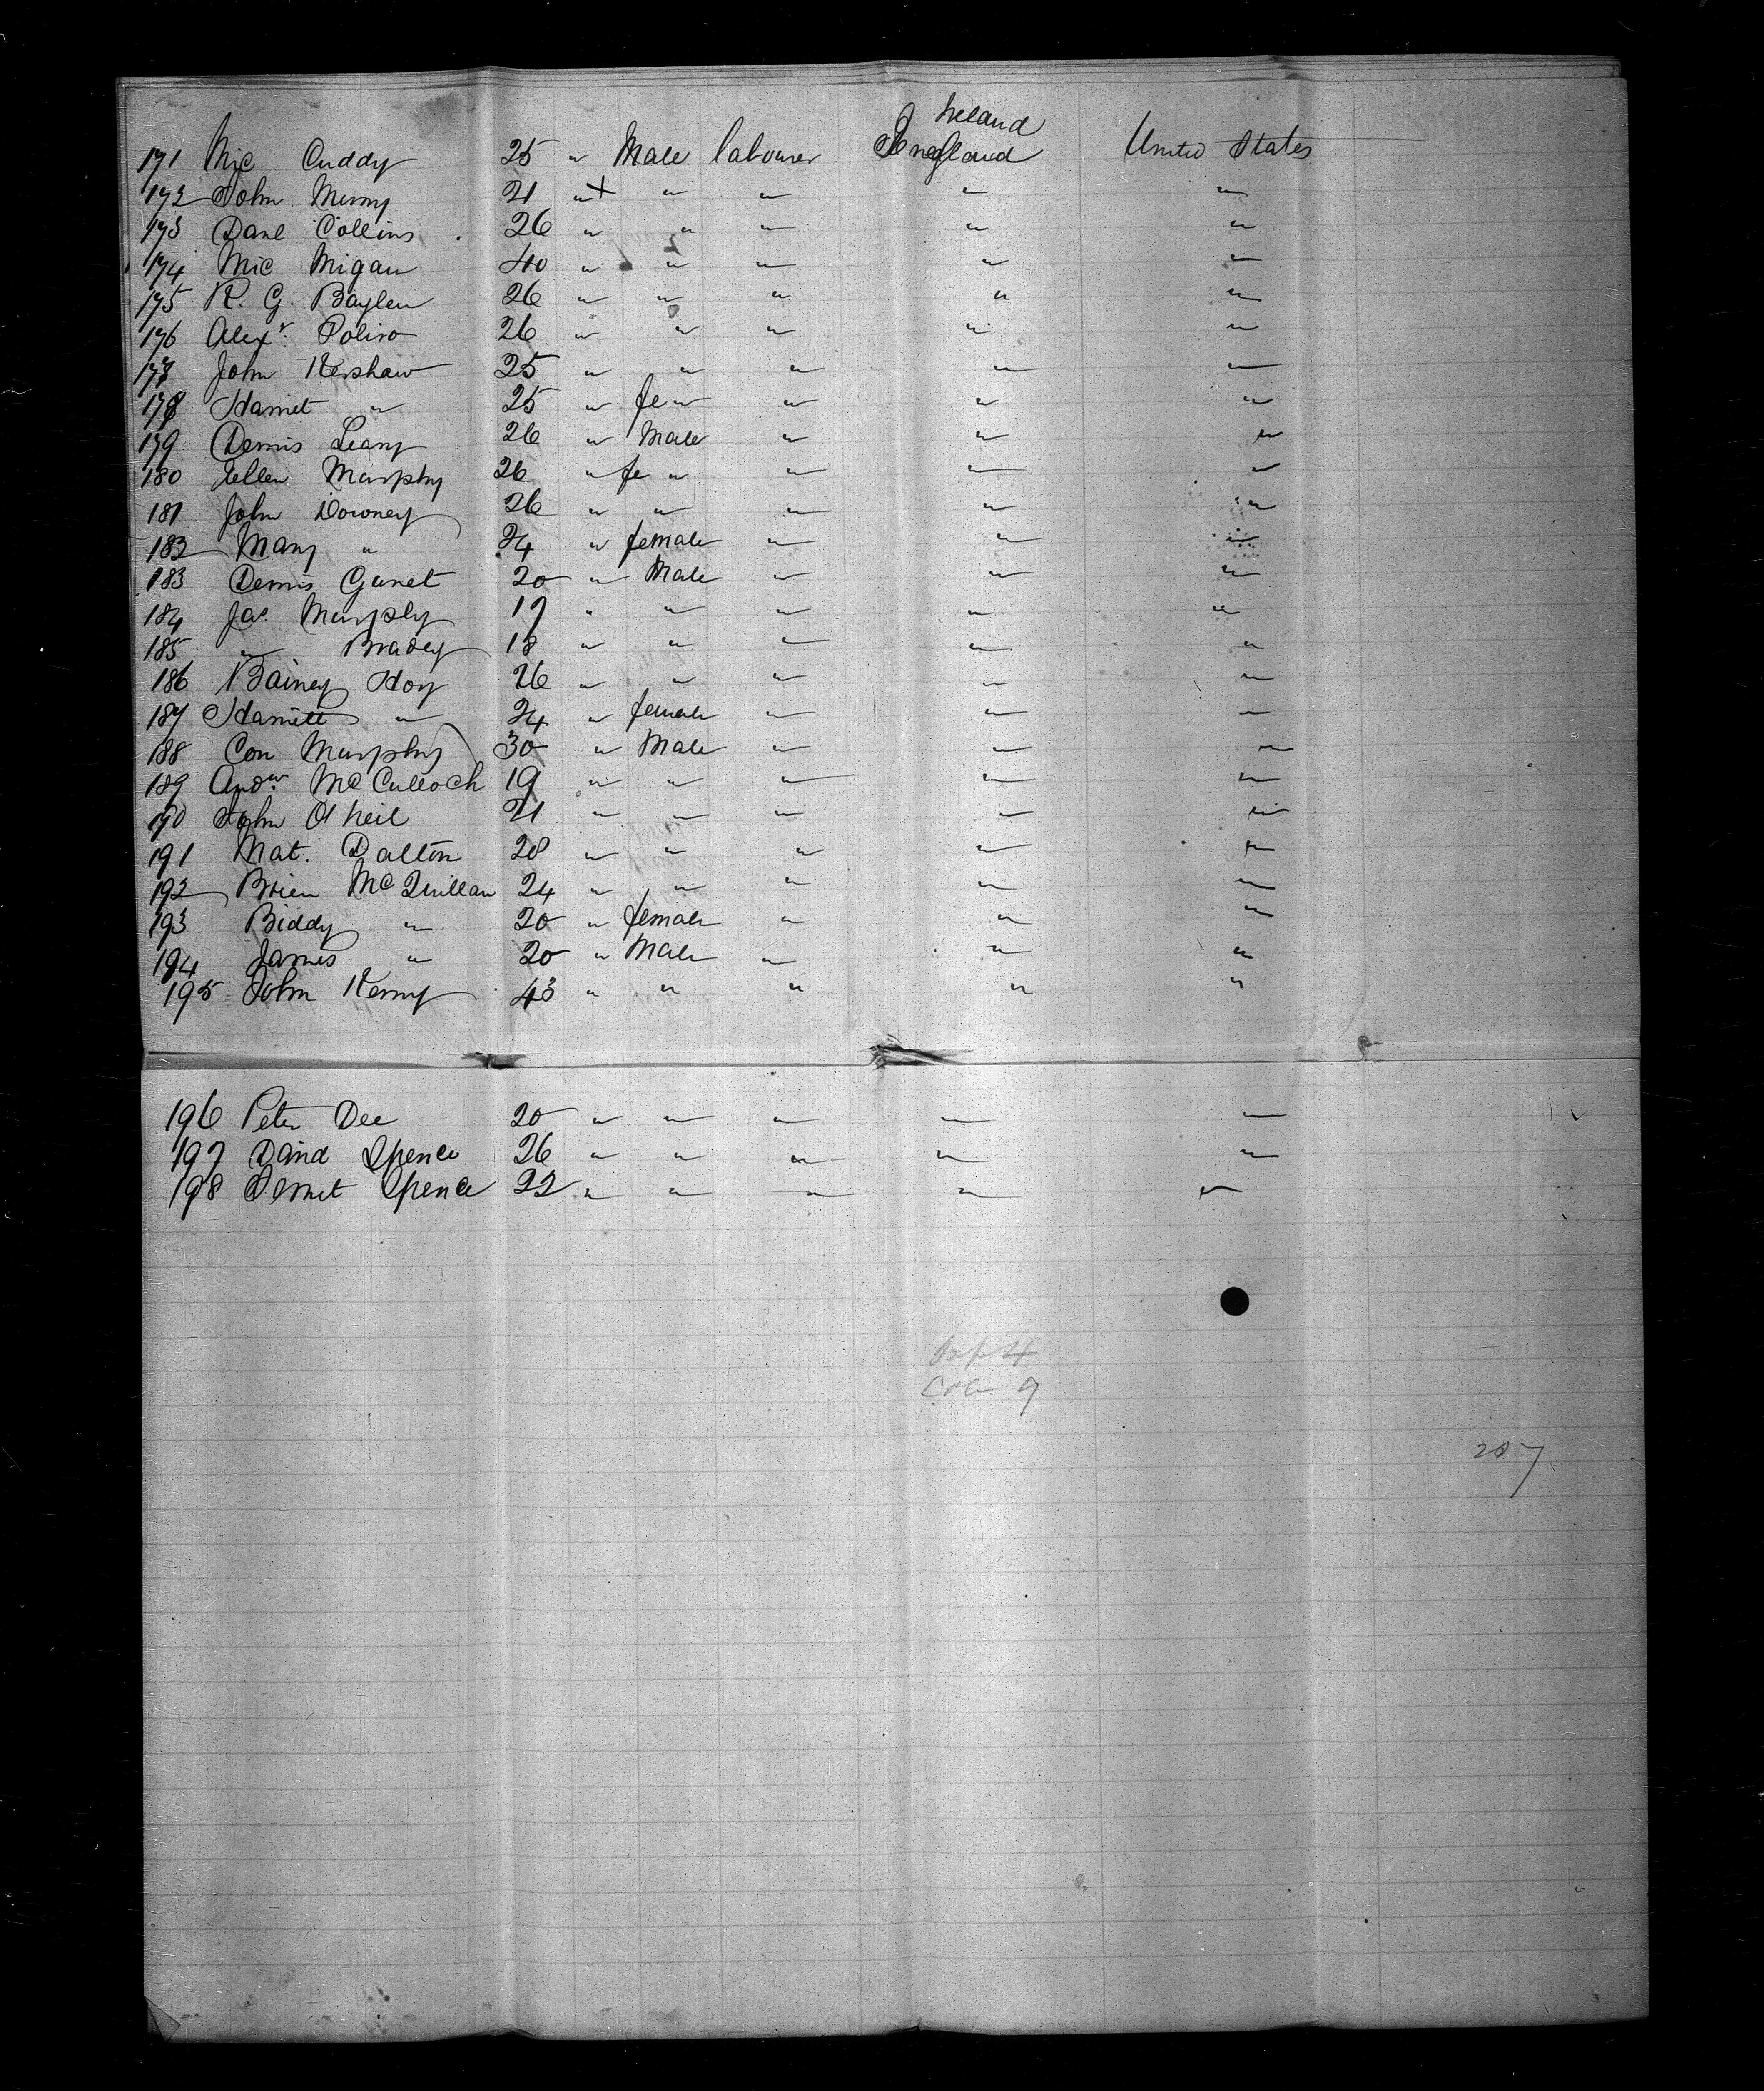 Ireland
171 Mic Cuddy 25 " Male labourer England United States
172 John Merny 21 " + " " " "
173 Danl Collins 26 " " " " "
174 Mic Migan 40 " " " " "
175 R. G. Baylen 26 " " " " "
176 Alexr. Poliro 26 " " " " "
177 John Kershaw 25 " " " " "
178 Harriet " 25 " fe " " " "
179 Dennis Leary 26 " Male " " "
180 Ellen Murphy 26 " fe " " " "
181 John Downey 26 " " " " "
182 Mary " 24 " female " " "
183 Dennis Garret 20 " Male " " "
184 Jas. Murphy 17 " " " " "
185 " Bradey 18 " " " " "
186 Bainey Hoy 26 " " " " "
187 Harriett " 24 " female " " "
188 Con Murphy 30 " Male " " "
189 Andw. McCulloch 19 " " " " "
190 John O'Neil 21 " " " " "
191 Mat. Dalton 28 " " " " "
192 Brien McQuillan 24 " " " " "
193 Biddy " 20 " female " " "
194 James " 20 " Male " " "
195 John Kenny 43 " " " " "
196 Peter Dee 20 " " " " "
197 David Spence 26 " " " " "
198 Spence 22 " " " " "
4
9
207